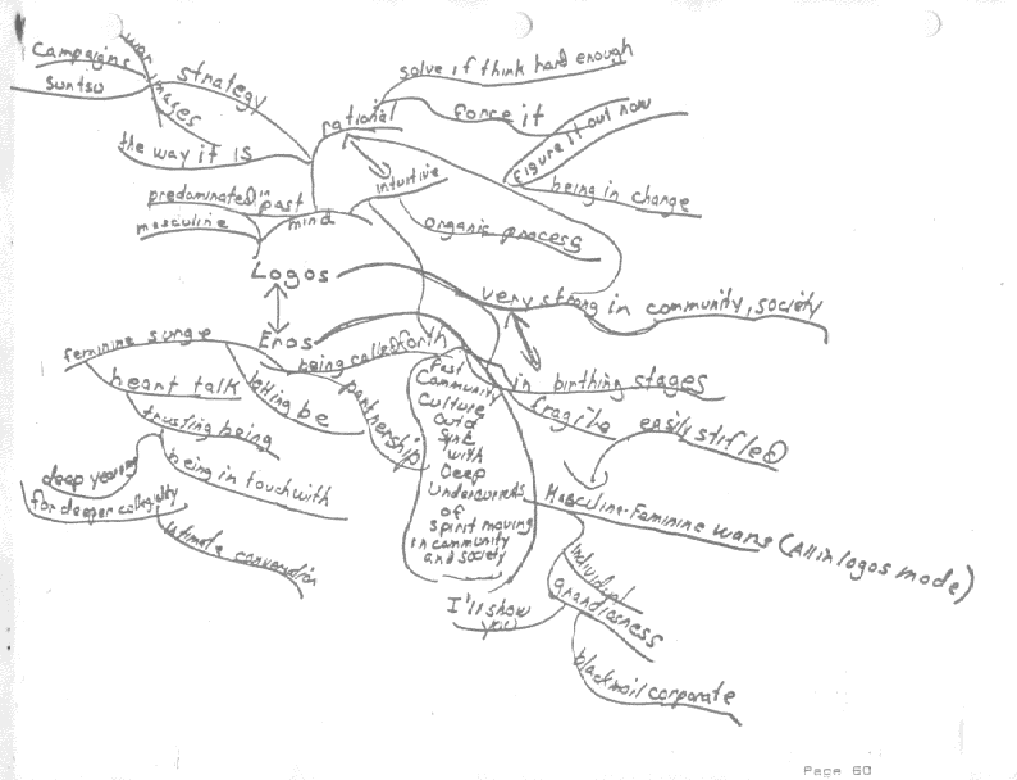 war images
Campaigns
suntsu
strategy
the way it is
solve if think hard enough
rational
force it
figure it out now
being in change
intuitive
organic process
predominated in past
masculine
mind
Logos
very strong in community, society
Eros
feminine
being called forth
in birthing stages
heart talk
letting be
partnership
fragile
easily stifled
trusting being
being in touch with
deep yearning
for deeper collegiality
ultimate conversation
Past
Community
Culture
Out of
Sync
with
Deep
Undercurrents
of
spirit moving
in community
and society
Masculine-Feminine wars (All in logos mode)
I'll show
you
individual
grandioseness
blackmail corporate
Page 60